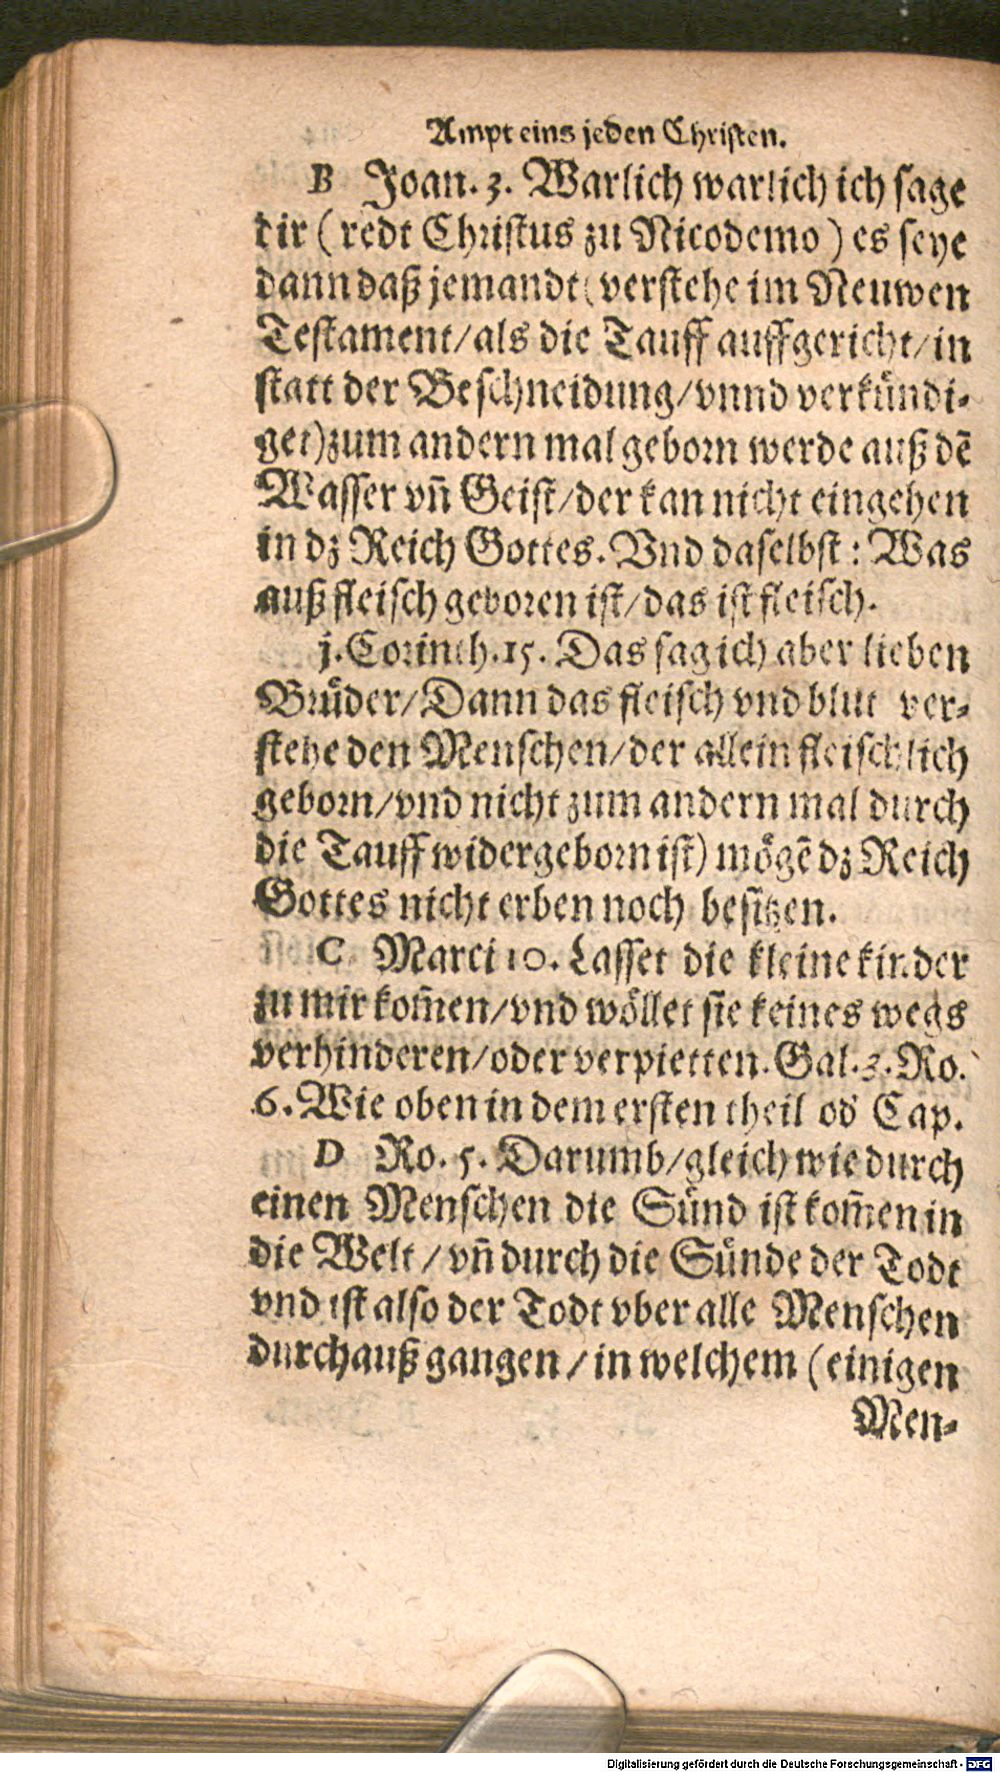 Ampt eins jeden Christen.
B Joan. 3. Warlich warlich ich sage
dir ( redt Christus zu Nicodemo ) es seye
dann daß jemandt ( verstehe im Neuwen
Testament/ als die Tauff auffgericht/ in
statt der Beschneidung/ vnnd verkündi-
get) zum andern mal geborn werde auß dē
Wasser vn̄ Geist/ der kan nicht eingehen
in dz Reich Gottes. Vnd daselbst : Was
auß fleisch geboren ist/ das ist fleisch.
j. Corinth. 15. Das sag ich aber lieben
Brüder/ Dann das fleisch vnd blut ver-
stehe den Menschen/ der allein fleischlich
geborn/ vnd nicht zum andern mal durch
die Tauff widergeborn ist) mögē dz Reich
Gottes nicht erben noch besitzen.
C Marci 10. Lasset die kleine kinder
zu mir kom̄en/ vnd wöllet sie keines wegs
verhinderen/ oder verpietten. Gal. 3. Ro.
6. Wie oben in dem ersten theil od̕ Cap.
D Ro. 5. Darumb/ gleich wie durch
einen Menschen die Sünd ist kom̄en in
die Welt / vn̄ durch die Sünde der Todt
vnd ist also der Todt vber alle Menschen
durchauß gangen / in welchem ( einigen
Men-
Digitalisierung gefördert durch die Deutsche Forschungsgemeinschaft - DFG